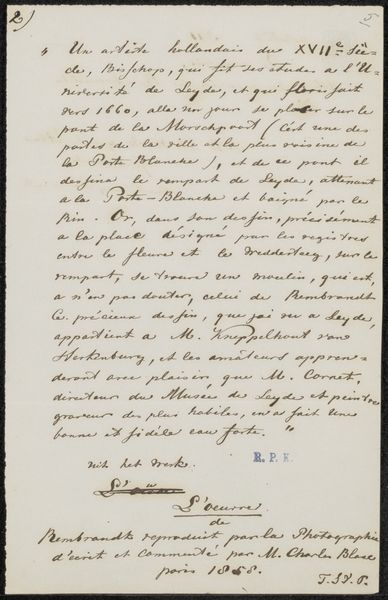 2)
5
" Un artiste hollandais du XVIIe Siè-
cle, Bisschop, qui fit ses études a l'U-
niversité de Leyde, et qui florissait
vers 1660, alla un jour se placer sur le
pont de la Morschpoort (C'est une des
portes de la ville et la plus voisine de
la Porte Blanche), et de ce pont il
dessina le rempart de Leyde, attenant
a la Porte-Blanche et baigné par le
Rin. Or, dans son dessin, précisément
a la place désigné par les registres
entre le fleuve et le Weddersteeg, sur le
rempart, se trouve un moulin, qui est,
a n'en pas douter, celui de Rembrandt
Ce précieux dessin, que j'ai vu a Leyde,
appartient a M. Kneppelhout van
Sterkenburg, et les amateurs appren-
dront avec plaisir que M. Cornet,
directeur du Musée de Leyde et peintre
graveur des plus habiles, en a fait une
bonne et fidèle eau forte. "
uit het Werk.
R. P. K.
L'oeuvre
de
Rembrandt reproduit par la Photographie
décrit et Commenté par M. Charles Blanc
paris 1858.